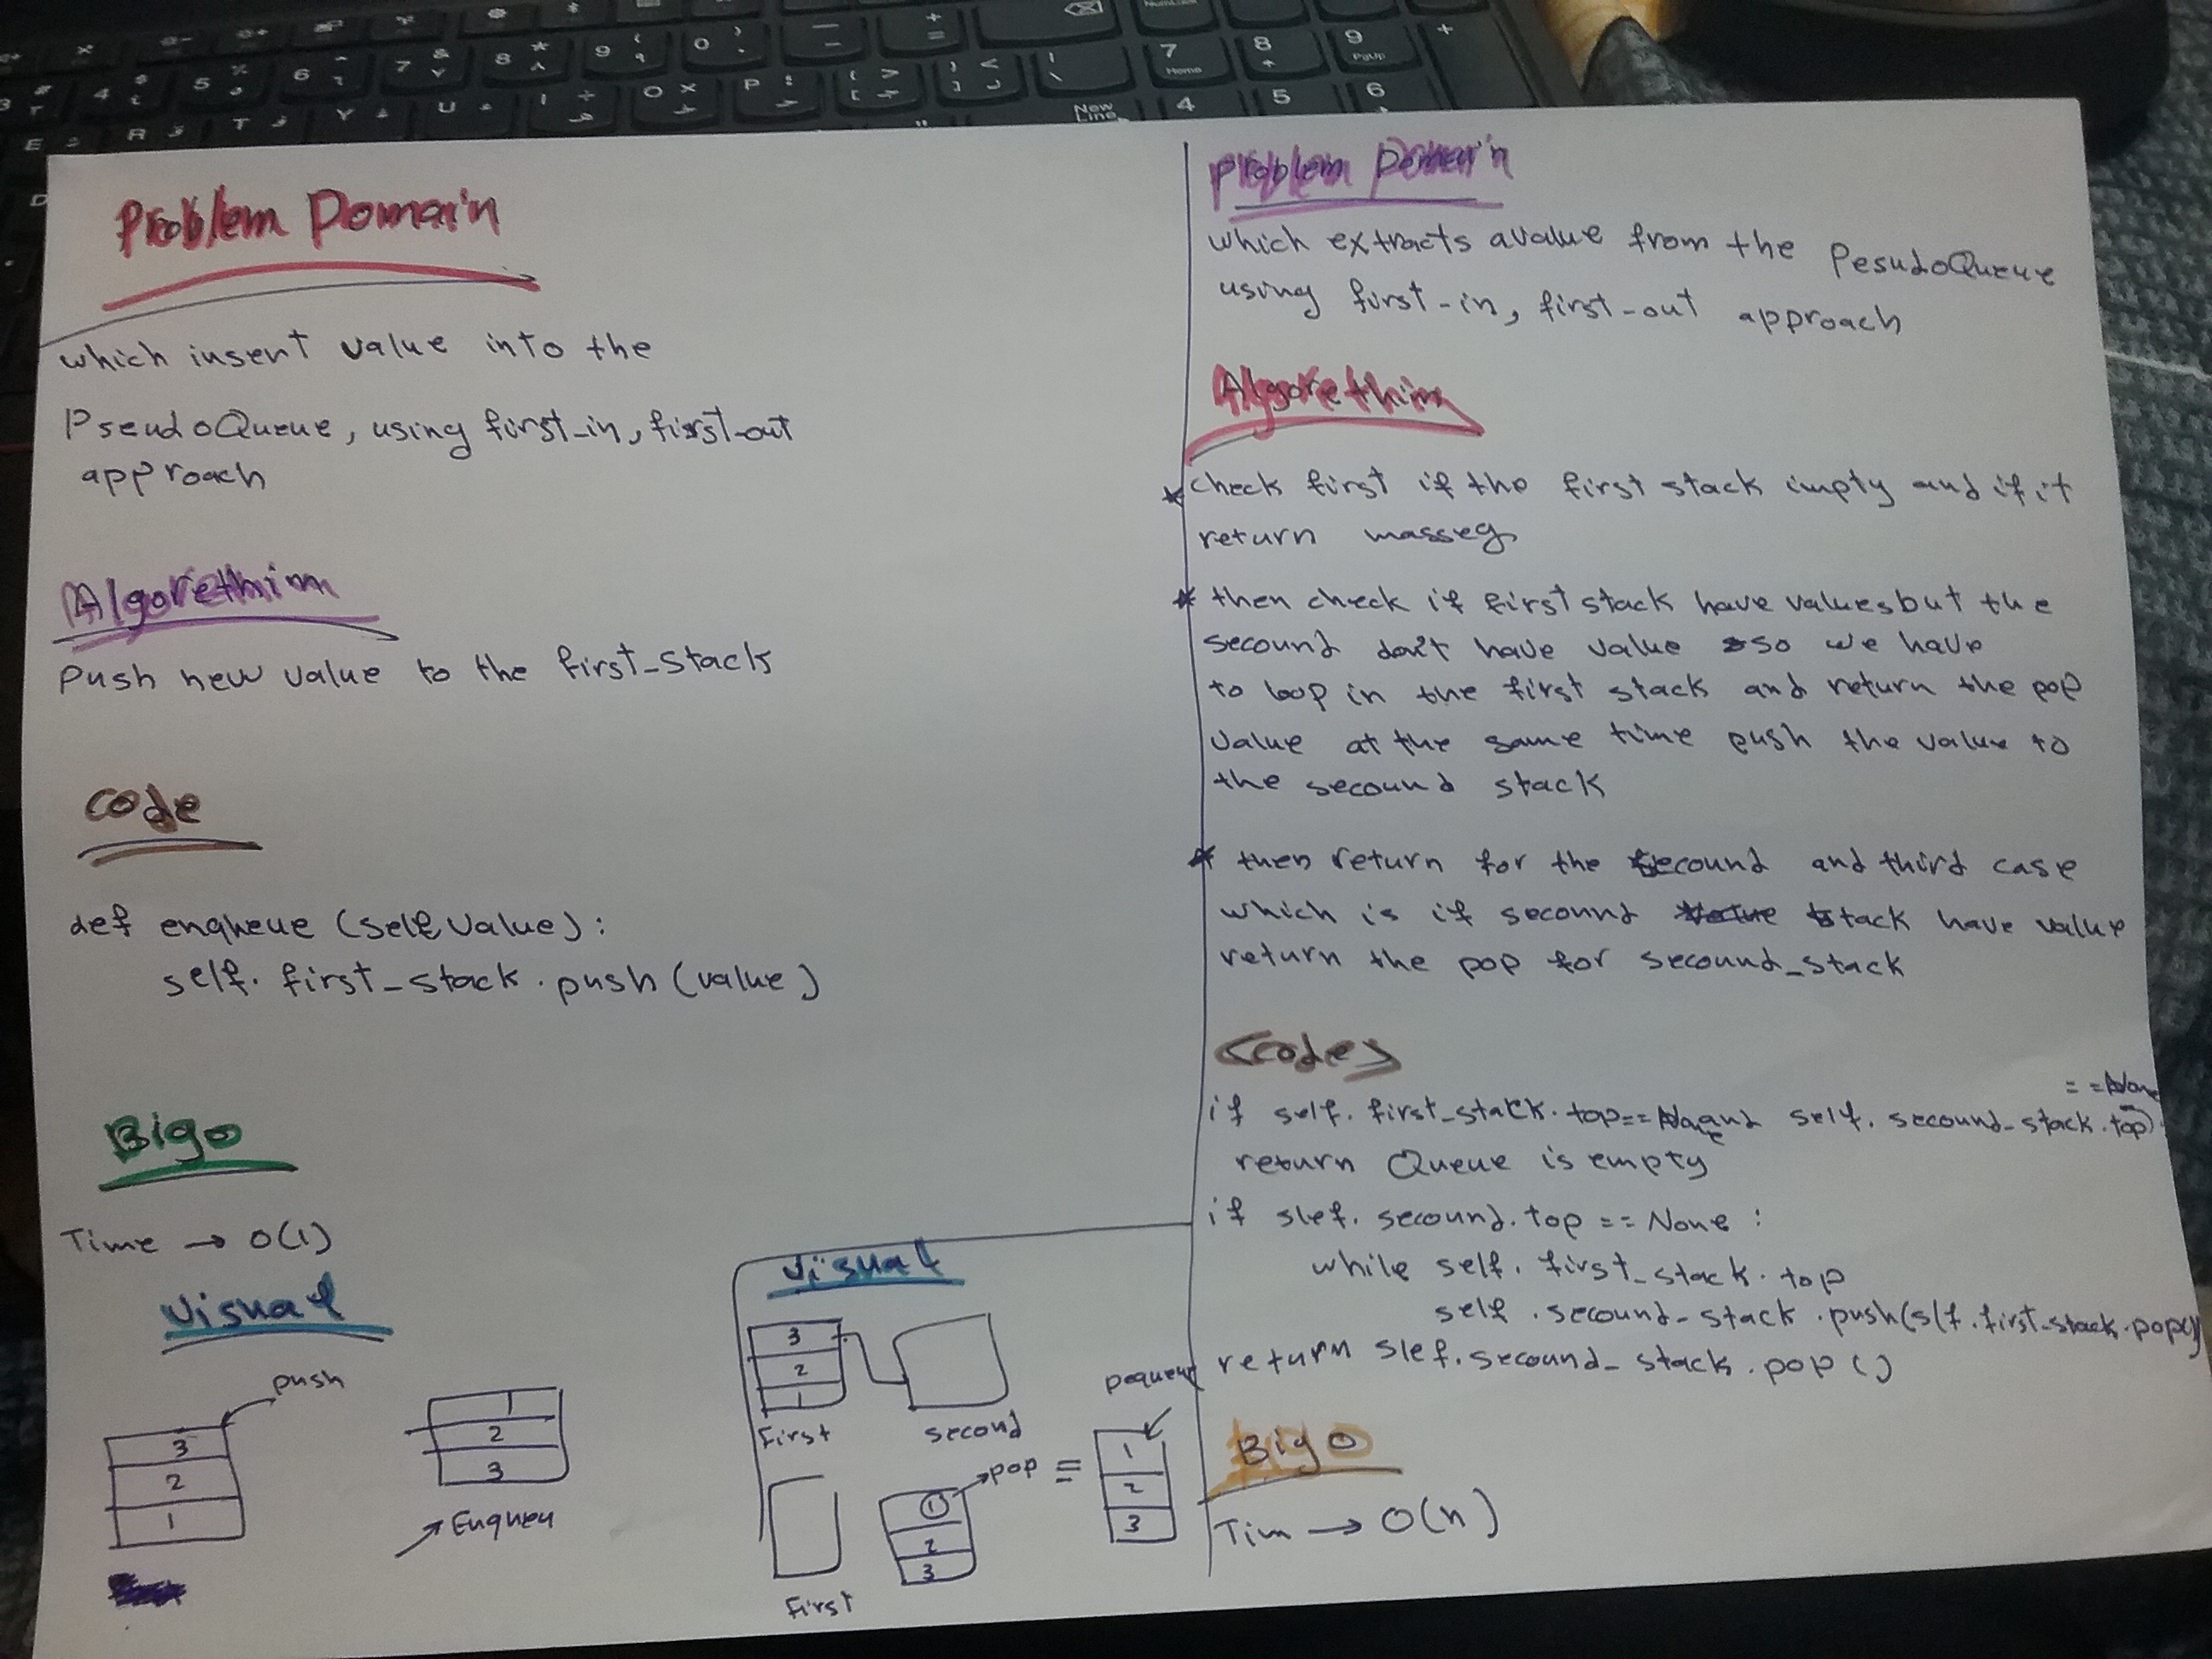 Problem Domain
which insert value into the
PseudoQueue, using first_in, first_out
approach
Algorethim
Push new value to the first_stack
code
def enqueue (self value):
self. first_stack. push (value)
Big o
Time → O(1)
visual
push
3
2
1
1
2
3
Enqueu
visual
3
2
1
First
second
First
1
2
3
pop =
Dequeue
1
2
3
Problem Domain
which extracts avalue from the PesudoQueue
using first-in, first-out approach
Algorethim
* check first if the first stack impty and if it
return masseg
* then check if first stack have values but the
secound don't have value so we have
to loop in the first stack and return the pop
value at the same time push the value to
the secound stack
* then return for the secound and third case
which is if secound stack have value
return the pop for secound_stack
<code>
== None
if self. first_stack. top== None and self. secound_stack.top):
return Queue is empty
if slef. secound. top == None :
while self. first_stack. top
self .secound_stack .push(slf.first_stack.pop())
return slef.secound_stack.pop ()
Big O
Tim → O(n)